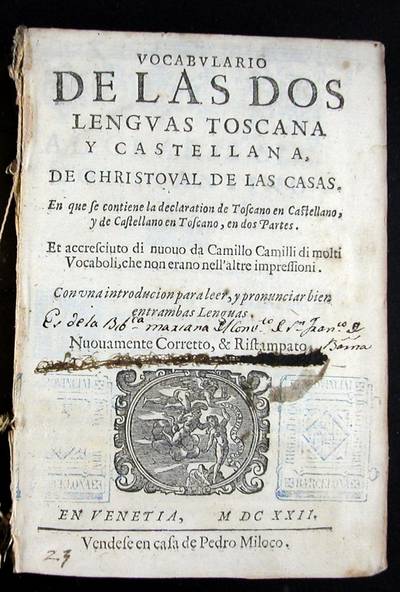 VOCABVLARIO
DE LAS DOS
LENGVAS TOSCANA
Y CASTELLANA,
DE CHRISTOVAL DE LAS CASAS.
En que se contiene la declaration de Toscano en Castellano,
y de Castellano en Toscano, en dos Partes.
Et accresciuto di nuouo da Camillo Camilli di molti
Vocaboli, che non erano nell'altre impressioni.
Con vna introducion para leer, y pronunciar bien
entrambas Lenguas.
Es de la Bib.ca mariana
Nuouamente Corretto, & Ristampato.
EN VENETIA, M DC XXII.
Vendese en casa de Pedro Miloco.
23